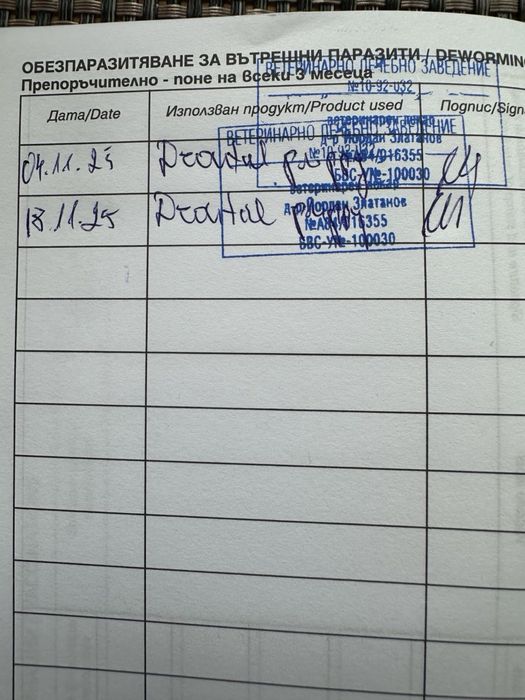 ОБЕЗПАРАЗИТЯВАНЕ ЗА ВЪТРЕШНИ ПАРАЗИТИ / DEWORMING
Препоръчително - поне на всеки 3 месеца
ВЕТЕРИНАРНО ЛЕЧЕБНО ЗАВЕДЕНИЕ
№10-92-032
Дата/Date
Използван продукт/Product used
Подпис/Sign
ветеринарен лекар
д-р Йордан Златанов
№А84/016355
БВС-У№-100030
04.11.25 Drontal puppy
ВЕТЕРИНАРНО ЛЕЧЕБНО ЗАВЕДЕНИЕ
№10-92-032
18.11.25 Drontal puppy
ветеринарен лекар
д-р Йордан Златанов
№А84/016355
БВС-У№-100030